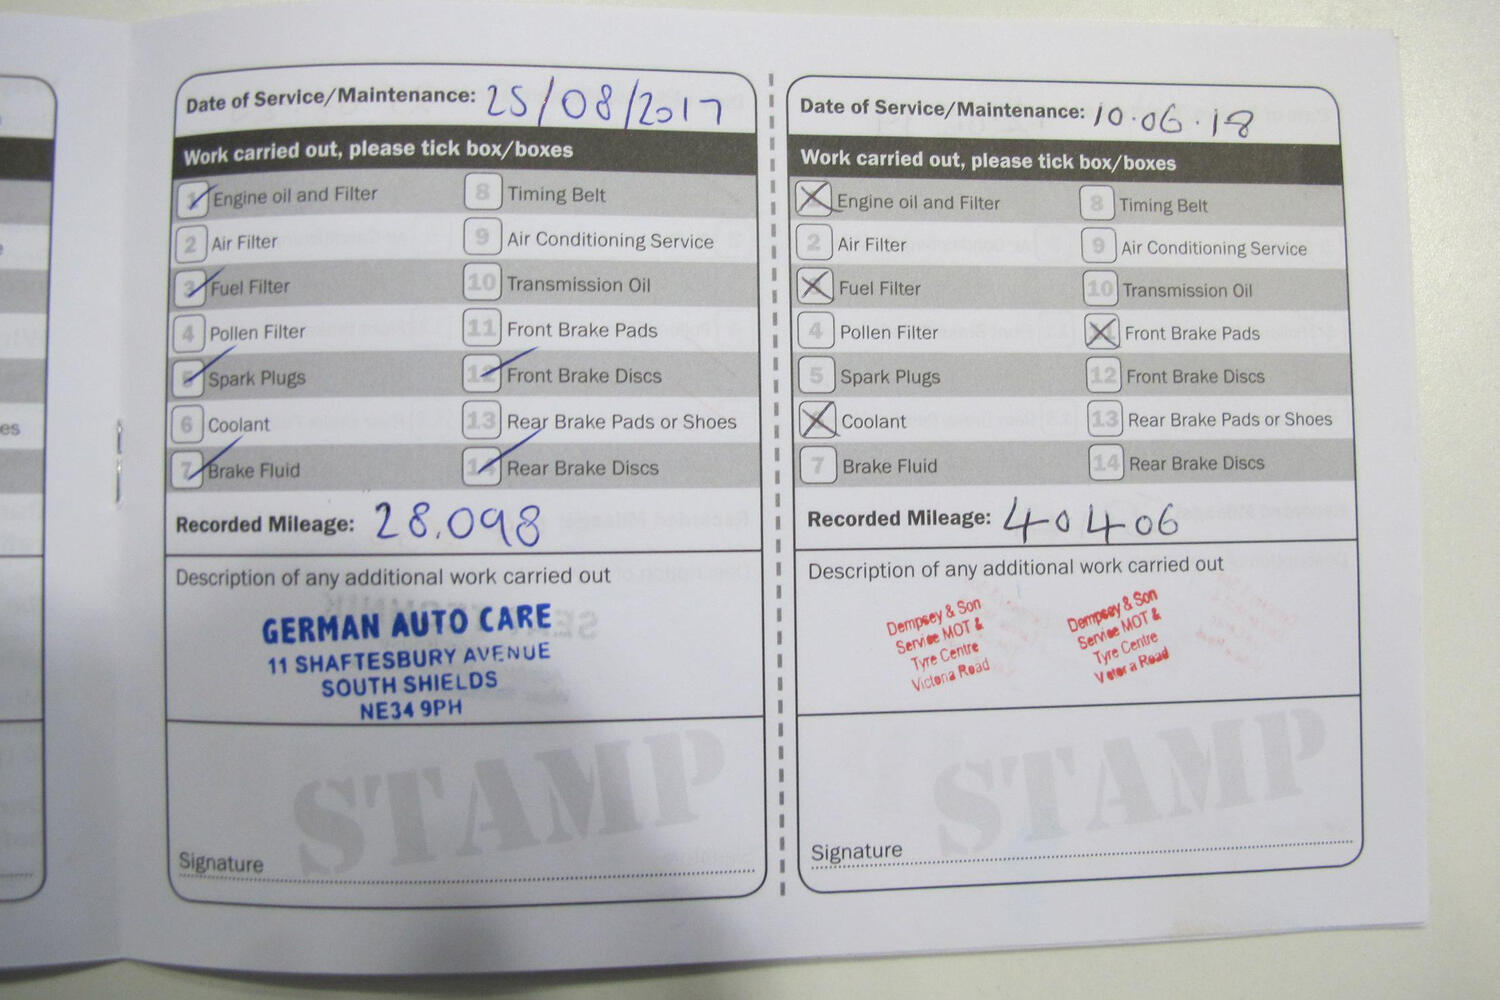 es
Date of Service/Maintenance: 25/08/2017
Work carried out, please tick box/boxes
1 Engine oil and Filter
2 Air Filter
3 Fuel Filter
4 Pollen Filter
5 Spark Plugs
6 Coolant
7 Brake Fluid
8 Timing Belt
9 Air Conditioning Service
10 Transmission Oil
11 Front Brake Pads
12 Front Brake Discs
13 Rear Brake Pads or Shoes
14 Rear Brake Discs
Recorded Mileage: 28.098
Description of any additional work carried out
GERMAN AUTO CARE
11 SHAFTESBURY AVENUE
SOUTH SHIELDS
NE34 9PH
STAMP
Signature
Date of Service/Maintenance: 10.06.18
Work carried out, please tick box/boxes
Engine oil and Filter
2 Air Filter
Fuel Filter
4 Pollen Filter
5 Spark Plugs
Coolant
7 Brake Fluid
8 Timing Belt
9 Air Conditioning Service
10 Transmission Oil
11 Front Brake Pads
12 Front Brake Discs
13 Rear Brake Pads or Shoes
14 Rear Brake Discs
Recorded Mileage: 40406
Description of any additional work carried out
Dempsey & Son
Service MOT &
Tyre Centre
Victoria Road
Dempsey & Son
Service MOT &
Tyre Centre
Road
STAMP
Signature